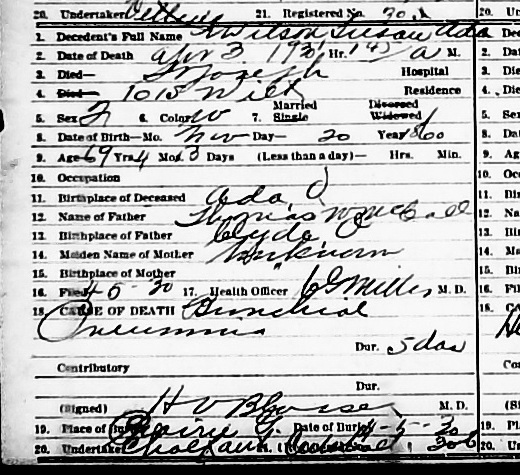 20. Undertaker 21. Registered No. 20.
1. Decedent's Full Name Wilson Susan Ada
2. Date of Death Apr 3 193 Hr. 145 a M.
3. Died— St Joseph Hospital
4. Died— 1015 Wilt Residence
5. Sex F 6. Color W 7. Married Single Divorced Widowed
8. Date of Birth—Mo. Nov Day— 20 Year 1860
9. Age 69 Yrs 4 Mos. 13 Days (Less than a day)— Hrs. Min.
10. Occupation
11. Birthplace of Deceased Ada O
12. Name of Father Thomas W McCall
13. Birthplace of Father Clyde O
14. Maiden Name of Mother Unknown
15. Birthplace of Mother "
16. Filed 4-5-30 17. Health Officer Miller M. D.
18. CAUSE OF DEATH Bronchial
Pneumonia
Dur. 5 das
Contributory
Dur.
(Signed) H O M. D.
19. Place of Burial Prairie Date of Burial 4-5-30
20. Undertaker Chalfant 206